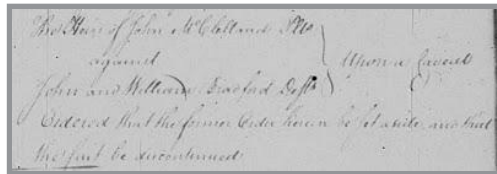 The Heirs of John McClelland Plts
against } Upon a Caveat
John and William Bradford Defts
Ordered that the former Order herein be set aside and that
this suit be discontinued